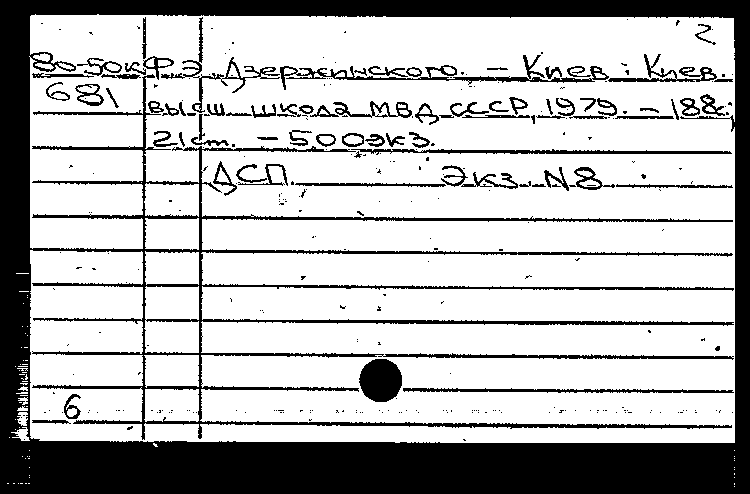 2
80-50к Ф.Э. Дзержинского. – Киев : Киев.
681 высш. школа МВД СССР, 1979. – 188с.;
21 см. – 500экз.
ДСП. Экз. N8
6